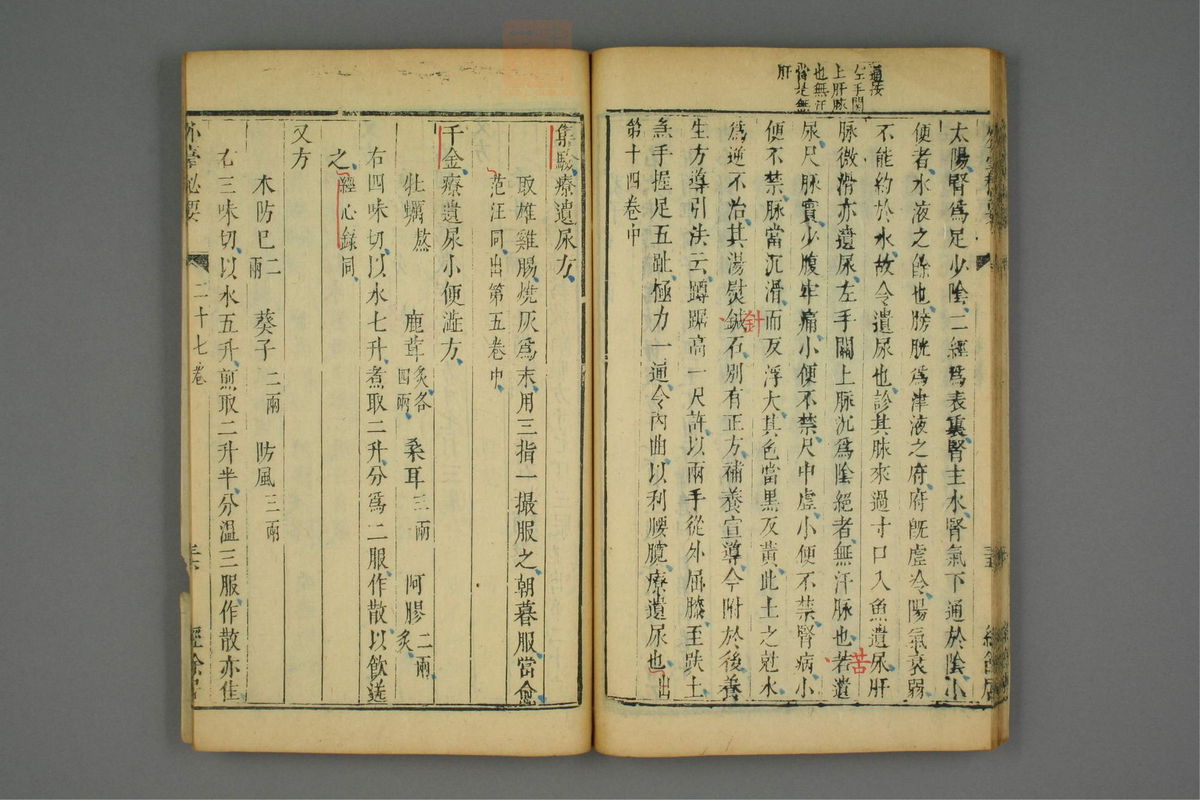 通按
左手関
上肝脉
也無汗
當是無
肝
太陽腎爲足少陰二經爲表裏腎主水腎氣下通於陰小
便者水液之餘也膀胱爲津液之府府旣虛令陽氣衰弱
不能約於水故令遺尿也診其脉來過寸口入魚遺尿肝
脉微滑亦遺尿左手關上脉沉爲陰絕者無汗脉也若遺
尿尺脉實少腹牢痛小便不禁尺中虛小便不禁腎病小
便不禁脉當沉滑而反浮大其色當黑反黃此土之尅水
爲逆不治其湯熨鍼石別有正方補養宣導今附於後養
生方導引法云蹲踞高一尺許以兩手從外屈膝至趺上
急手握足五趾極力一通令內曲以利腰臗療遺尿也出
第十四卷中
針
苦
集驗療遺尿方
取雄雞腸燒灰爲末用三指一撮服之朝暮服當愈
范汪同出第五卷中
千金療遺尿小便澁方
牡蠣熬 鹿茸炙各四兩 桑耳三兩 阿膠二兩炙
右四味切以水七升煮取二升分爲二服作散以飲送
之經心錄同
又方
木防巳二兩 葵子二兩 防風三兩
右三味切以水五升煎取二升半分溫三服作散亦佳
外臺秘要 二十七卷 三六 經餘居